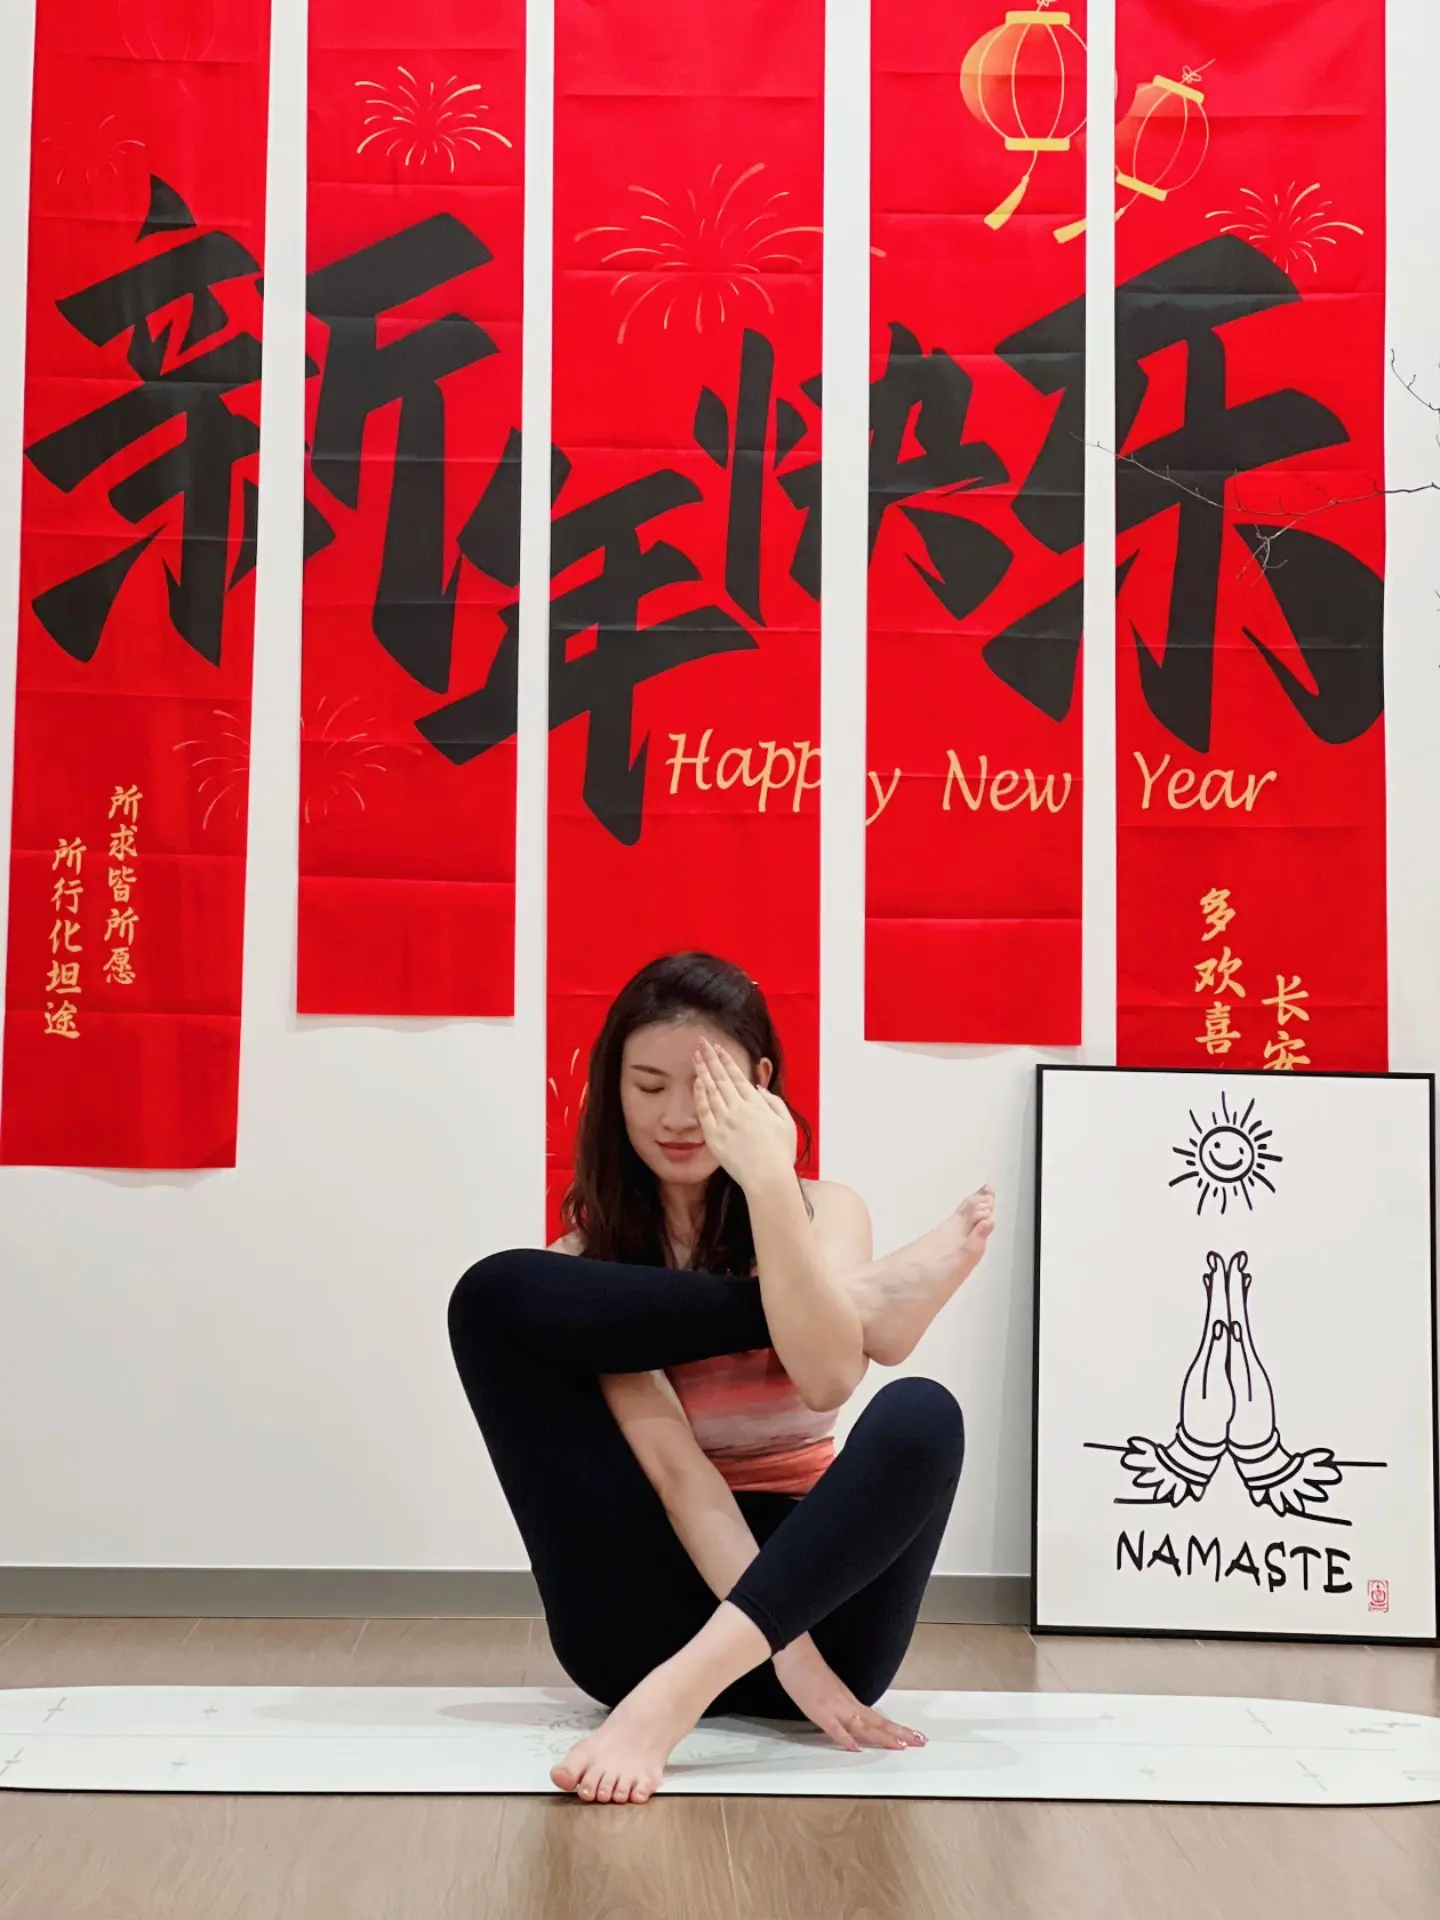 新年快乐
Happy New Year
所求皆所愿
所行化坦途
多欢喜
长安
NAMASTE